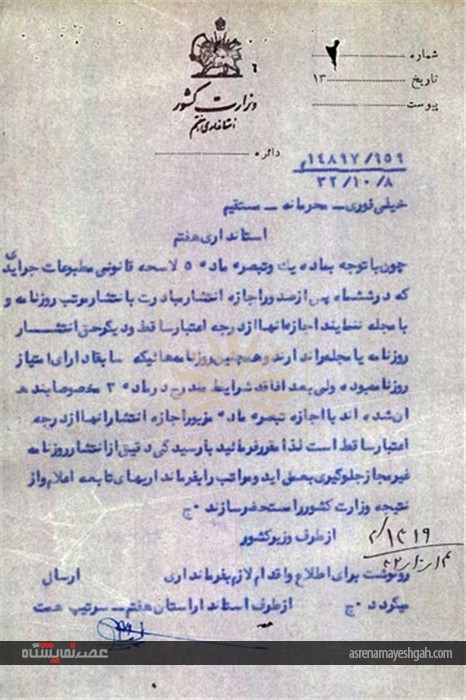 شماره ۲
تاریخ ۱۳
پیوست
وزارت کشور
استانداری هفتم
دائره
۱۴۸۹۷/۹۵۹م
۳۲/۱۰/۸
خیلی فوری - محرمانه - مستقیم
استانداری هفتم
چون با توجه بماده یک و تبصره ماده ۵ لایحه قانونی مطبوعات جرایدی
که در ششماه پس از صدور اجازه انتشار مبادرت با نتشار مرتب روزنامه و
یا مجله ننمایند اجازه آنها از درجه اعتبار ساقط و دیگر حق انتشار
روزنامه یا مجله را ندارند و همچنین روزنامه هائیکه سابقا دارای امتیاز
روزنامه بوده ولی بعد افاقد شرایط مندرج در ماده ۳ مخصوصا بند هـ
آن شده اند با اجازه تبصره ماده مزبور اجازه انتشار انها از درجه
اعتبار ساقط است لذا مقرر فرمائید با رسیدگی دقیق از انتشار روزنامه
غیر مجاز جلوگیری بعمل اید و مراتب را بفرمانداریهای تابعه اعلام و از
نتیجه وزارت کشور را مستحضر سازند ج
از طرف وزیر کشور
رونوشت برای اطلاع و اقدام لازم بفرمانداری ارسال
میگردد ج از طرف استاندار استان هفتم - سرتیپ همت
عصر نمایشگاه
asrenamayeshgah.com